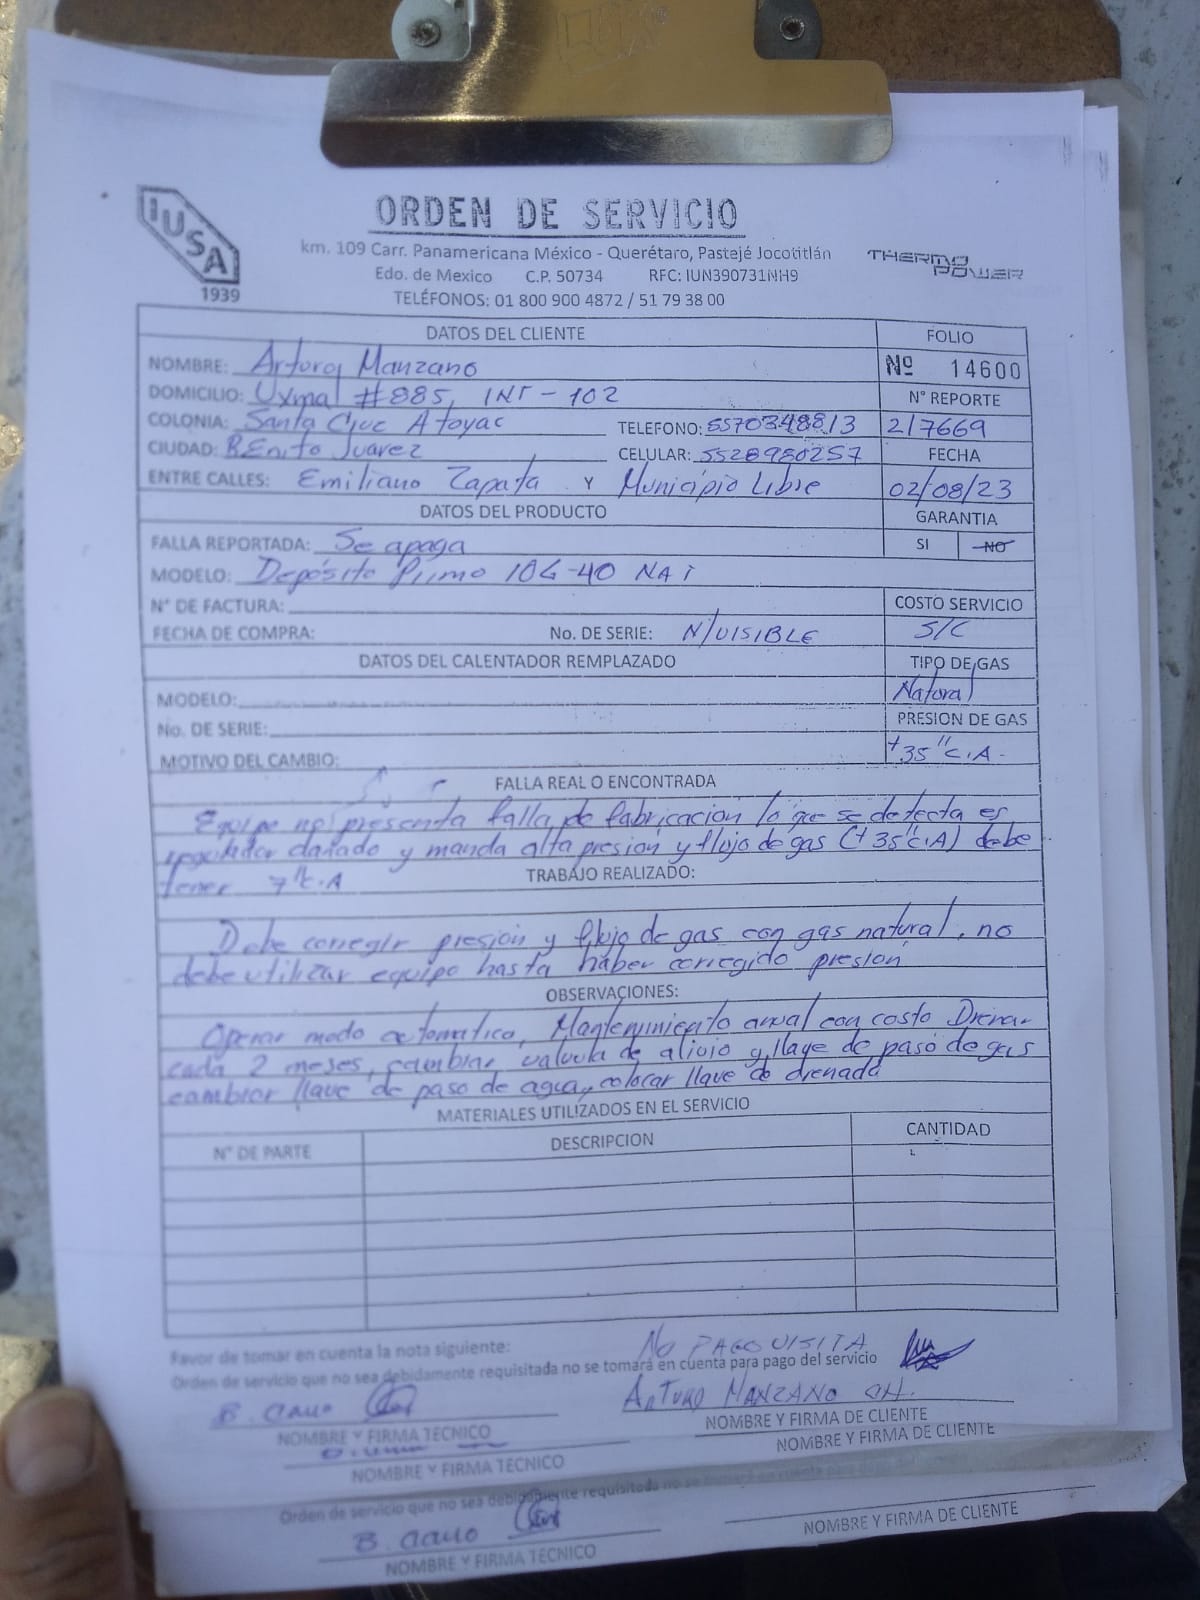 IUSA
1939
ORDEN DE SERVICIO
km. 109 Carr. Panamericana México - Querétaro, Pastejé Jocotitlán
Edo. de Mexico C.P. 50734 RFC: IUN390731NH9
TELÉFONOS: 01 800 900 4872 / 51 79 38 00
THERMO POWER
DATOS DEL CLIENTE
FOLIO
NOMBRE: Arturo Manzano
Nº 14600
DOMICILIO: Uxmal #885, INT - 102
N° REPORTE
COLONIA: Santa Cruz Atoyac TELEFONO: 5570348813
217669
CIUDAD: BEnito Juarez CELULAR: 5528980257
FECHA
ENTRE CALLES: Emiliano Zapata Y Municipio Libre
02/08/23
DATOS DEL PRODUCTO
GARANTIA
FALLA REPORTADA: Se apaga
SI NO
MODELO: Depósito Primo 10G-40 NAT
N° DE FACTURA:
COSTO SERVICIO
FECHA DE COMPRA: No. DE SERIE: N/VISIBLE
S/C
DATOS DEL CALENTADOR REMPLAZADO
TIPO DE GAS
MODELO:
Natural
No. DE SERIE:
PRESION DE GAS
MOTIVO DEL CAMBIO:
+35" C.A.
FALLA REAL O ENCONTRADA
Equipo no presenta falla de fabricacion lo que se detecta es
regulador dañado y manda alta presion y flujo de gas (+35"C.A) debe
tener 7"C.A
TRABAJO REALIZADO:
Debe corregir presion y flujo de gas con gas natural, no
debe utilizar equipo hasta haber corregido presion
OBSERVACIONES:
Operar modo automatico, Mantenimiento anual con costo Drenar
cada 2 meses, cambiar valvula de alivio y llave de paso de gas
cambiar llave de paso de agua, colocar llave de drenado
MATERIALES UTILIZADOS EN EL SERVICIO
N° DE PARTE DESCRIPCION CANTIDAD
Favor de tomar en cuenta la nota siguiente: No PAGO VISITA
Orden de servicio que no sea debidamente requisitada no se tomará en cuenta para pago del servicio
ARTURO MANZANO CH.
NOMBRE Y FIRMA TECNICO NOMBRE Y FIRMA DE CLIENTE
NOMBRE Y FIRMA TECNICO NOMBRE Y FIRMA DE CLIENTE
Orden de servicio que no sea debidamente requisitada no se tomará en cuenta para
NOMBRE Y FIRMA TECNICO NOMBRE Y FIRMA DE CLIENTE